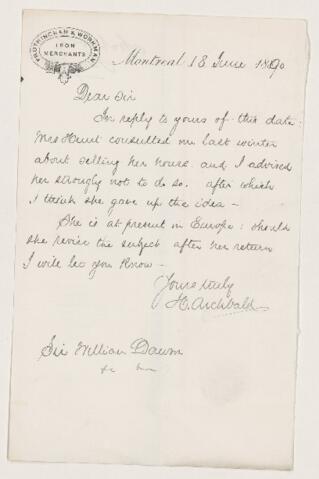 FROTHINGHAM & WORKMAN
IRON
MERCHANTS
Montreal 18 June 1890
Dear Sir
In reply to yours of this date.
Mrs Hunt consulted me last winter
about selling her house and I advised
her strongly not to do so. after which
I think she gave up the idea -
She is at present in Europe: should
she revive the subject after her return
I will let you know -
Yours truly
H. Archbald
Sir William Dawson